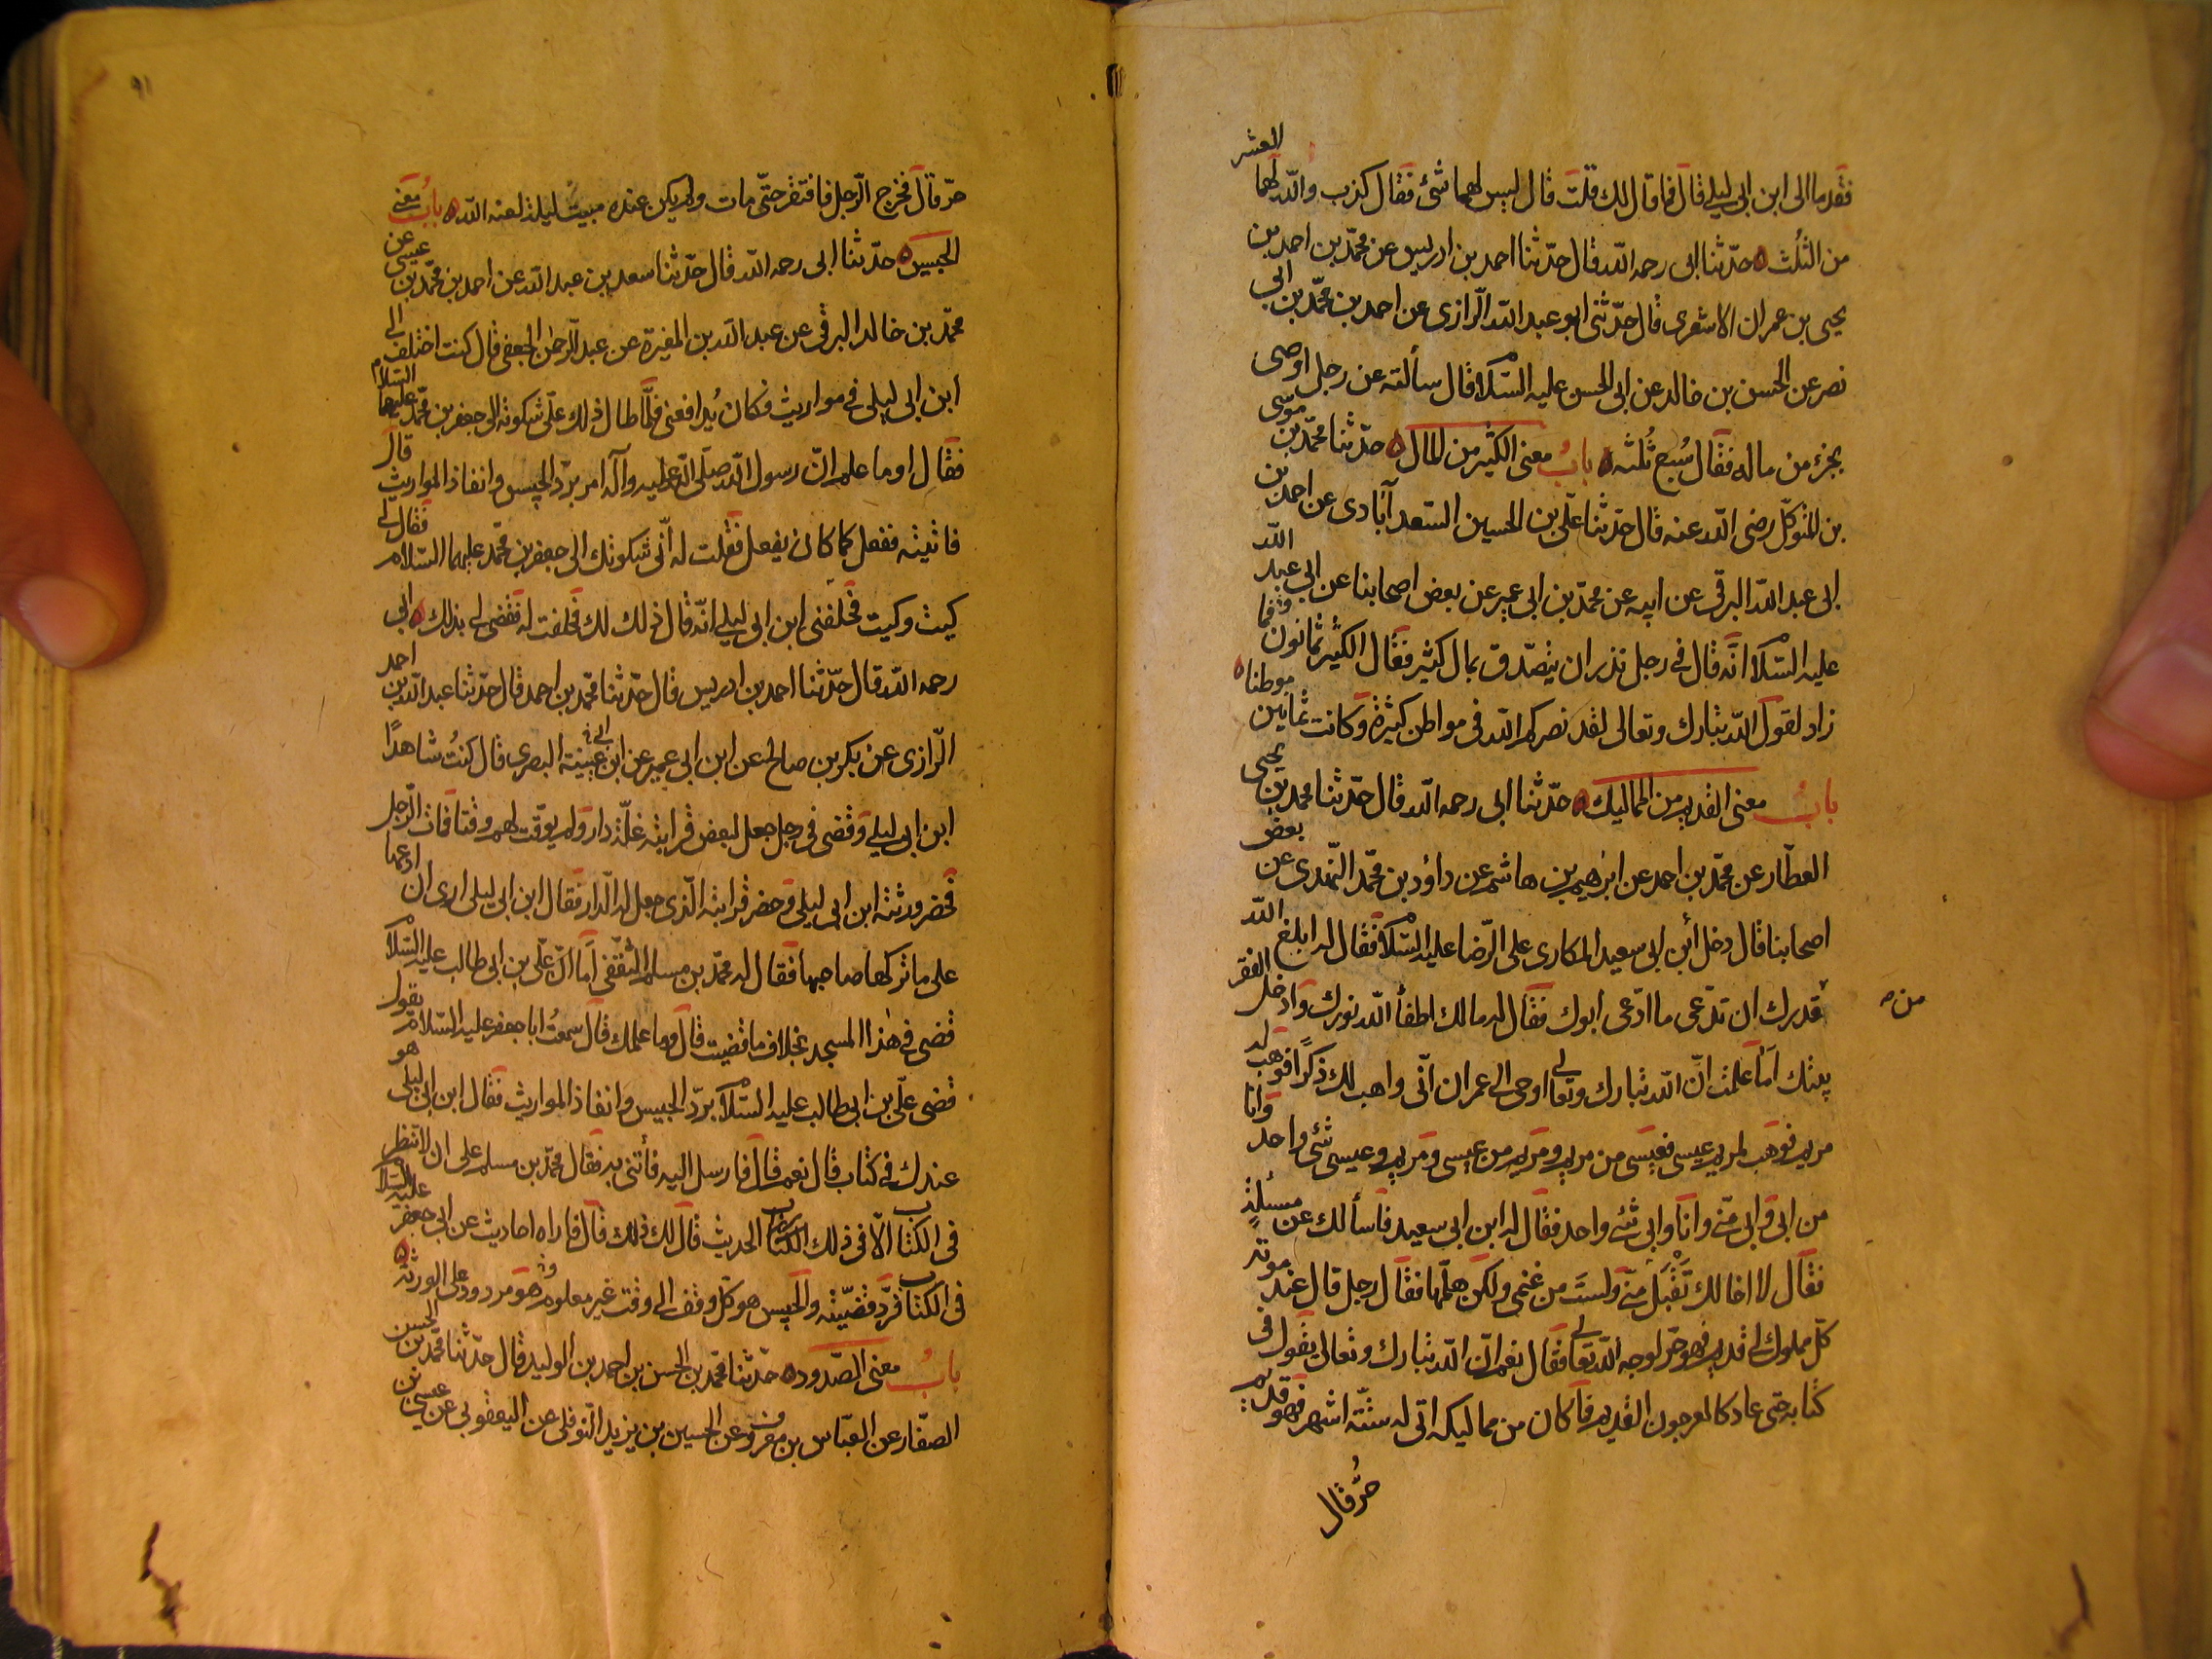 فقدما الى ابن ابى ليلى قال فما قال لك قلت قال ليس لهما شئ فقال كذب والله لهما العشر
من الثلث حدّثنا ابى رحمه الله قال حدّثنا احمد بن ادريس عن محمّد بن احمد بن
يحيى بن عمران الاشعرى قال حدّثنى ابو عبد الله الرّازى عن احمد بن محمّد بن ابى
نصر عن الحسن بن خالد عن ابى الحسن عليه السّلام قال سألته عن رجل اوصى
بجزء من ماله فقال سُبع ثُلثه بابُ معنى الكثير من المال حدّثنا محمّد بن موسى
بن المتوكّل رضى الله عنه قال حدّثنا علىّ بن الحسين السّعد آبادى عن احمد بن
ابى عبد الله البرقى عن ابيه عن محمّد بن ابى عمير عن بعض اصحابنا عن ابى عبد الله
عليه السّلام انّه قال فى رجل نذر ان يتصدّق بمال كثير فقال الكثير ثمانون وفما
زاد لقول الله تبارك وتعالى لقد نصركم الله فى مواطن كثيرة وكانت ثمانين موطنا
بابُ معنى القديم من المماليك حدّثنا ابى رحمه الله قال حدّثنا محمد بن يحيى
العطّار عن محمّد بن احمد عن ابرهيم بن هاشم عن داؤد بن محمّد النّهدى عن بعض
اصحابنا قال دخل ابن ابى سعيد المكارى على الرّضا عليه السّلام فقال له ابلغ الله
من قدرك ان تدّعى ما ادّعى ابوك فقال له مالك اطفأ الله نورك وادخل الفقر
بيتك اَما علمت انّ الله تبارك وتعالى اوحى الى عمران انّى واهب لك ذكرًا فوهب له
مريم فوهب لمريم عيسى فعيسى من مريم ومريم من عيسى ومريم وعيسى شئ واحد وانا
من ابى وابى منّى وانا وابى شئ واحد فقال له ابن ابى سعيد فاسألك عن مسئلةٍ
فقال لا اخالك تَقْبَل منّى ولستَ من غنمى ولكن هلمّها فقال رجل قال عند موته
كلّ مملوك لى قديم فهو حرّ لوجه الله تعالى فقال نعم انّ الله تبارك وتعالى يقول فى
كتابه حتى عاد كالعرجون القديم فما كان من مماليكه اتى له ستّة اشهر فهو قديم
حُرّ قال
٩١
حرّ قال فخرج الرّجل فافتقر حتّى مات ولم يكن عنده مبيت ليلة لعنه الله بابُ معنى
الحبيس حدّثنا ابى رحمه الله قال حدّثنا سعد بن عبد الله عن احمد بن محمّد بن عيسى عن
محمّد بن خالد البرقى عن عبد الله بن المغيرة عن عبد الرّحمن الجعفى قال كنت اختلف الى
ابن ابى ليلى فى مواريث فكان يُدافعنى فلمّا طال ذلك علىّ شكوته الى جعفر بن محمّد عليهما السّلام
فقال اوما علم انّ رسول الله صلّى الله عليه وآله امر بردّ الحبيس وانفاذ المواريث قال
فاتيته ففعل كما كان يفعل فقلت له انّى شكوتك الى جعفر بن محمّد عليهما السّلام فقال لى
كيت وكيت فحلّفنى ابن ابى ليلى انّه قال ذلك لك فحلفت له فقضى لى بذلك ابى
رحمه الله قال حدّثنا احمد بن ادريس قال حدّثنا محمّد بن احمد قال حدّثنا عبد الله بن احمد
الرّازى عن بكر بن صالح عن ابن ابى عمير عن ابن عيينة البصرى قال كنتُ شاهدًا
ابن ابى ليلى وقضى فى رجل جعل لبعض قرابته غلّة دار ولم يوقّت لهم وقتا فمات الرّجل
فحضر ورثته ابن ابى ليلى وحضر قرابته الّذى جعل له الدّار فقال ابن ابى ليلى ارى ان ادعها
على ما تركها صاحبها فقال له محمّد بن مسلم الثّقفى اَما انّ علىّ بن ابى طالب عليه السّلام
قضى فى هذا المسجد بخلاف ما قضيت قال وما علمك قال سمعتُ ابا جعفر عليه السّلام يقول
قضى علىّ بن ابى طالب عليه السّلام بردّ الحبيس وانفاذ المواريث فقال ابن ابى ليلى هو
عندك فى كتاب قال نعم قال فارسل اليه فأتنى به فقال محمّد بن مسلم على ان لا تنظر
فى الكتاب الّا فى ذلك الحديث قال لك ذلك قال فاراه احاديث عن ابى جعفر عليه السّلام
فى الكتاب فردّ قضيّته والحبيس هو كلّ وقف الى وقت غير معلوم هو مردود على الورثة
بابُ معنى الصّدود حدّثنا محمّد بن الحسن بن احمد بن الوليد قال حدّثنا محمّد بن الحسن
الصفّار عن العبّاس بن معروف عن الحسين بن يزيد النّوفلى عن اليعقوبى عن عيسى بن